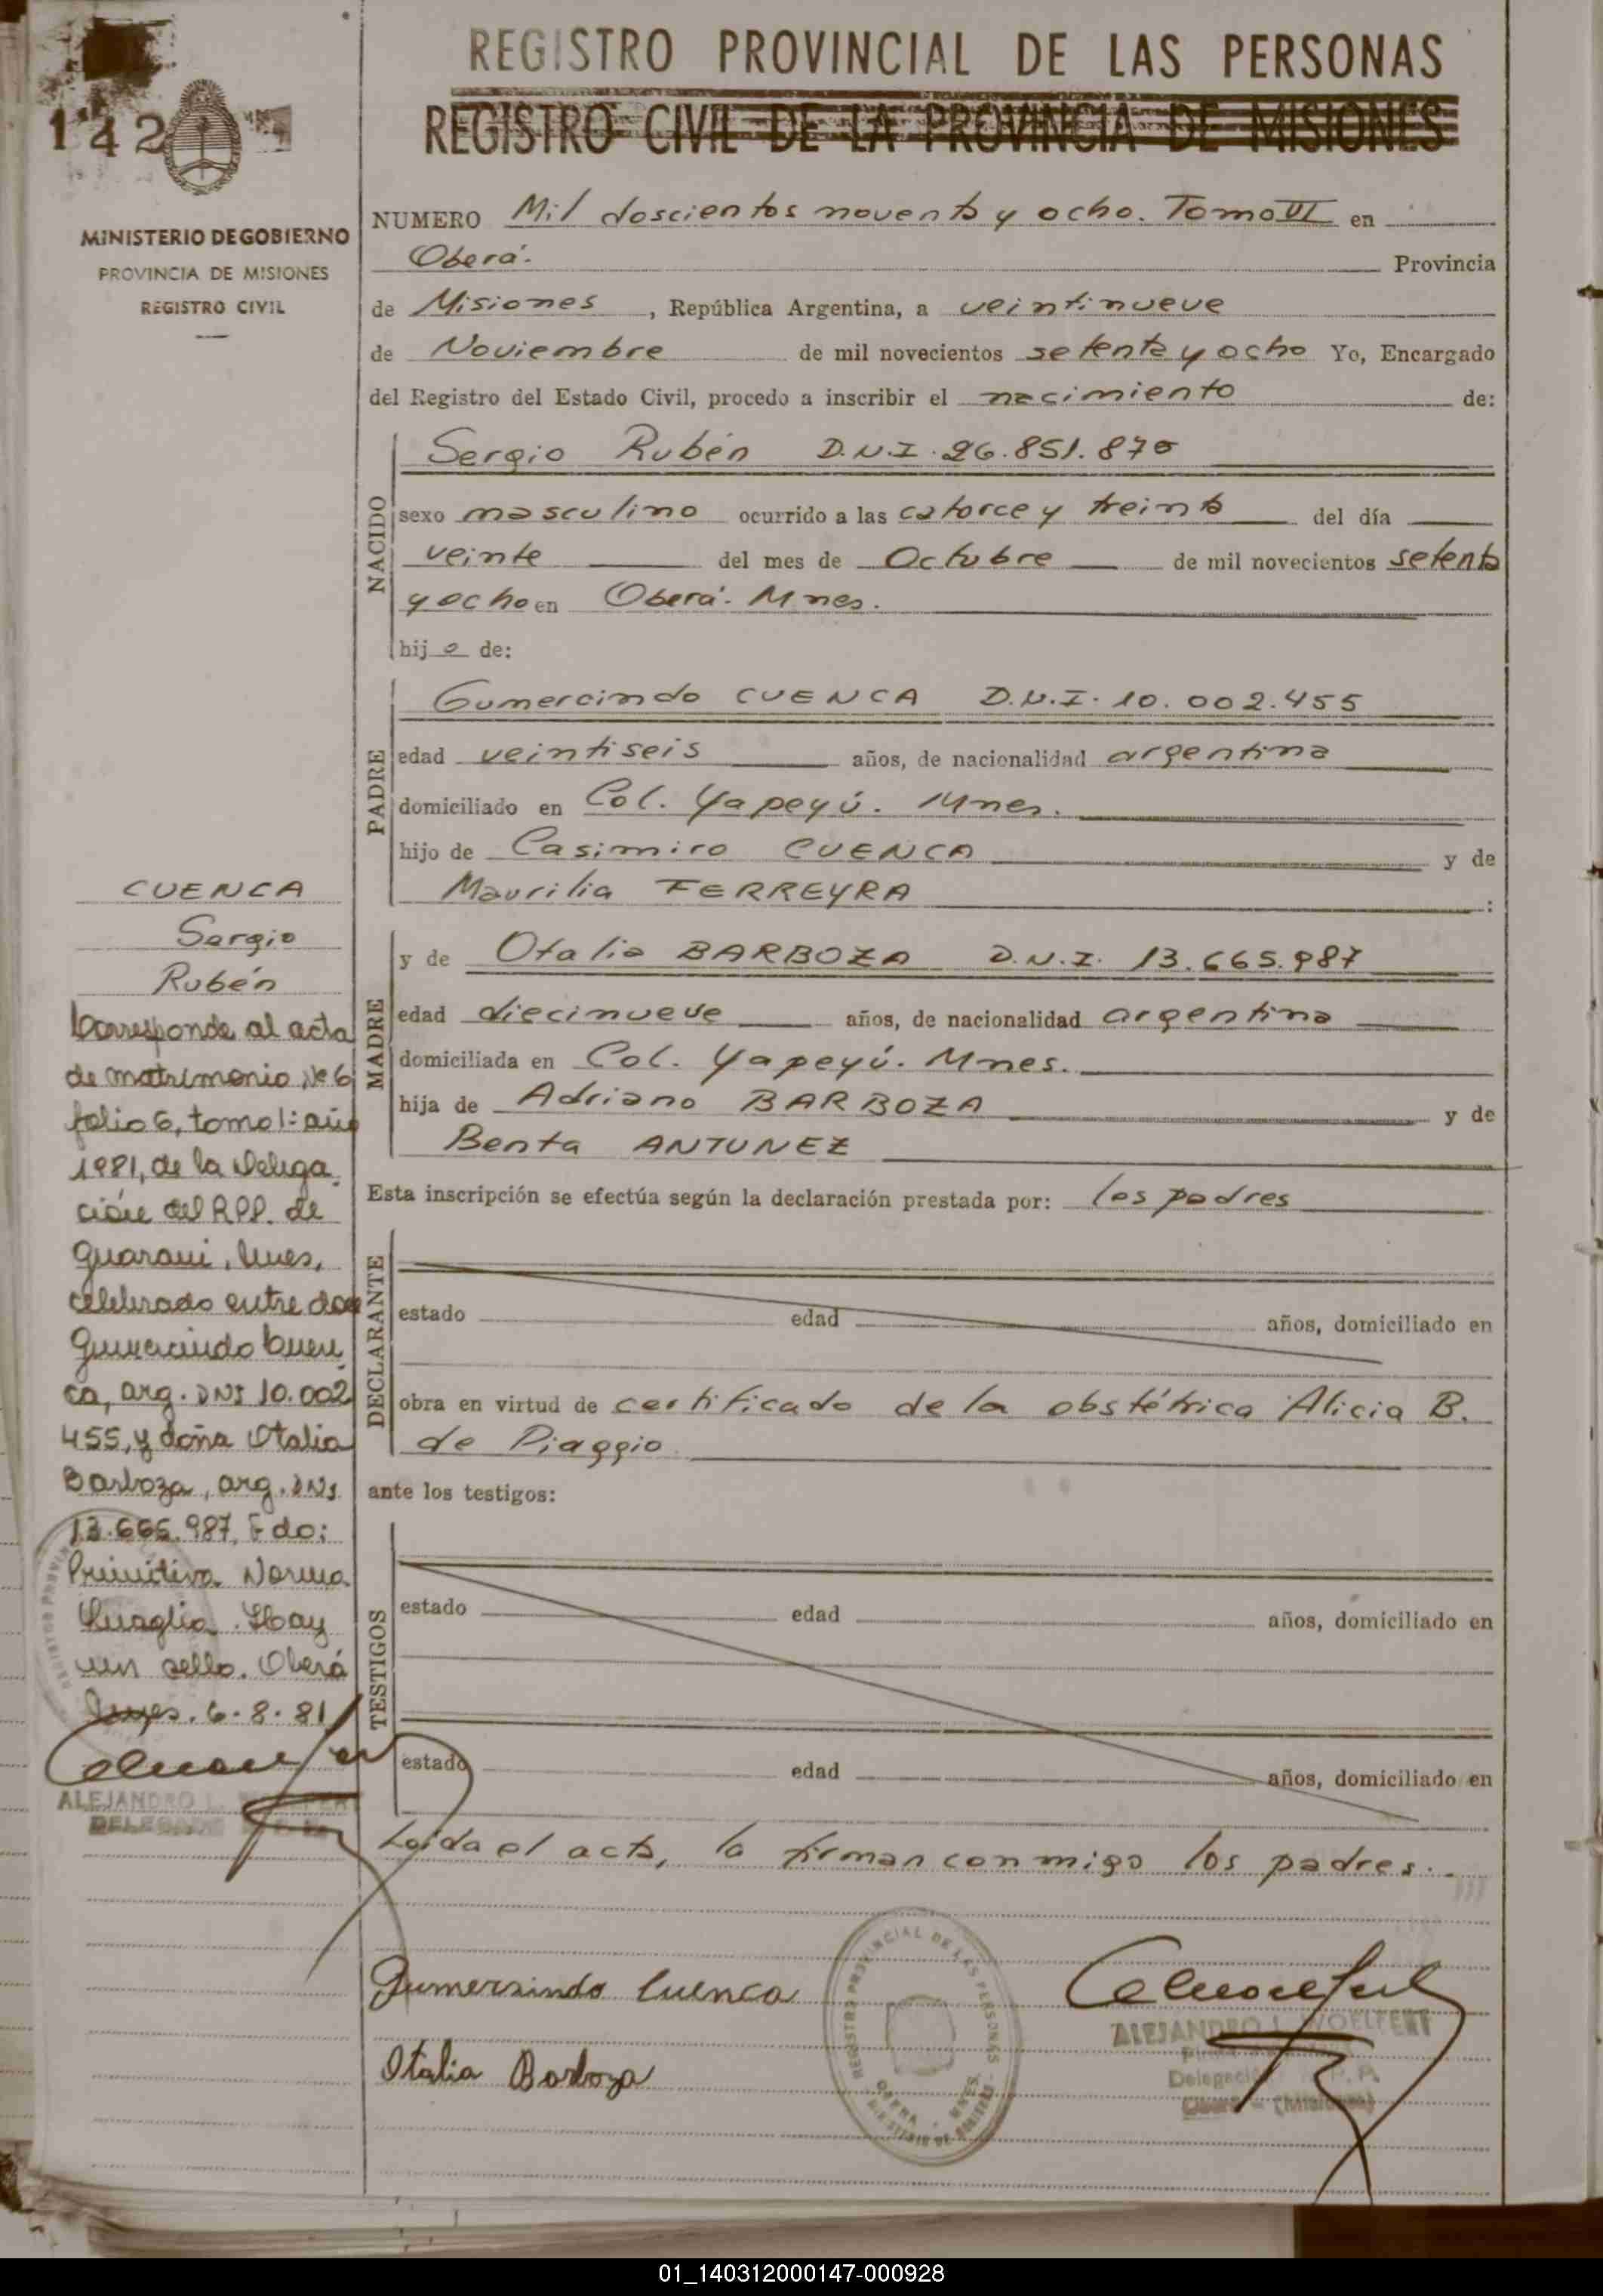 REGISTRO PROVINCIAL DE LAS PERSONAS
REGISTRO CIVIL DE LA PROVINCIA DE MISIONES
142
MINISTERIO DE GOBIERNO
PROVINCIA DE MISIONES
REGISTRO CIVIL
NUMERO Mil doscientos noventa y ocho. Tomo VI en
Oberá. Provincia
de Misiones, República Argentina, a veintinueve
de Noviembre de mil novecientos setenta y ocho Yo, Encargado
del Registro del Estado Civil, procedo a inscribir el nacimiento de:
NACIDO
Sergio Rubén D.N.I. 26.851.870
sexo masculino ocurrido a las catorce y treinta del día
veinte del mes de Octubre de mil novecientos setenta
y ocho en Oberá. Mnes.
hijo de:
PADRE
Gumercindo CUENCA D.N.I. 10.002.455
edad veintiseis años, de nacionalidad argentina
domiciliado en Col. Yapeyú. Mnes.
hijo de Casimiro CUENCA y de
Maurilia FERREYRA :
MADRE
y de Otalia BARBOZA D.N.I. 13.665.987
edad diecinueve años, de nacionalidad argentina
domiciliada en Col. Yapeyú. Mnes.
hija de Adriano BARBOZA y de
Benta ANTUNEZ
Esta inscripción se efectúa según la declaración prestada por: los padres
DECLARANTE
estado edad años, domiciliado en
obra en virtud de certificado de la obstétrica Alicia B.
de Piaggio
ante los testigos:
TESTIGOS
estado edad años, domiciliado en
estado edad años, domiciliado en
Leída el acta, la firman conmigo los padres.
Gumersindo Cuenca
Otalia Barboza
REGISTRO PROVINCIAL DE LAS PERSONAS
OBERA - MNES.
ALEJANDRO L. WOELFERT
Delegación R.P.P.
Oberá - (Misiones)
CUENCA
Sergio
Rubén
Corresponde al acta
de matrimonio Nº 6
folio 6, tomo 1: año
1981, de la Delega
ción del RPP. de
Guarani, Mnes,
celebrado entre don
Gumercindo Cuen
ca, arg. DNI 10.002
455, y doña Otalia
Barboza, arg. DNI
13.665.987, Fdo:
Primitiva Norma
Quaglia. Hay
un sello. Oberá
Mnes. 6-8-81
ALEJANDRO L. WOELFERT
DELEGADO
01_140312000147-000928